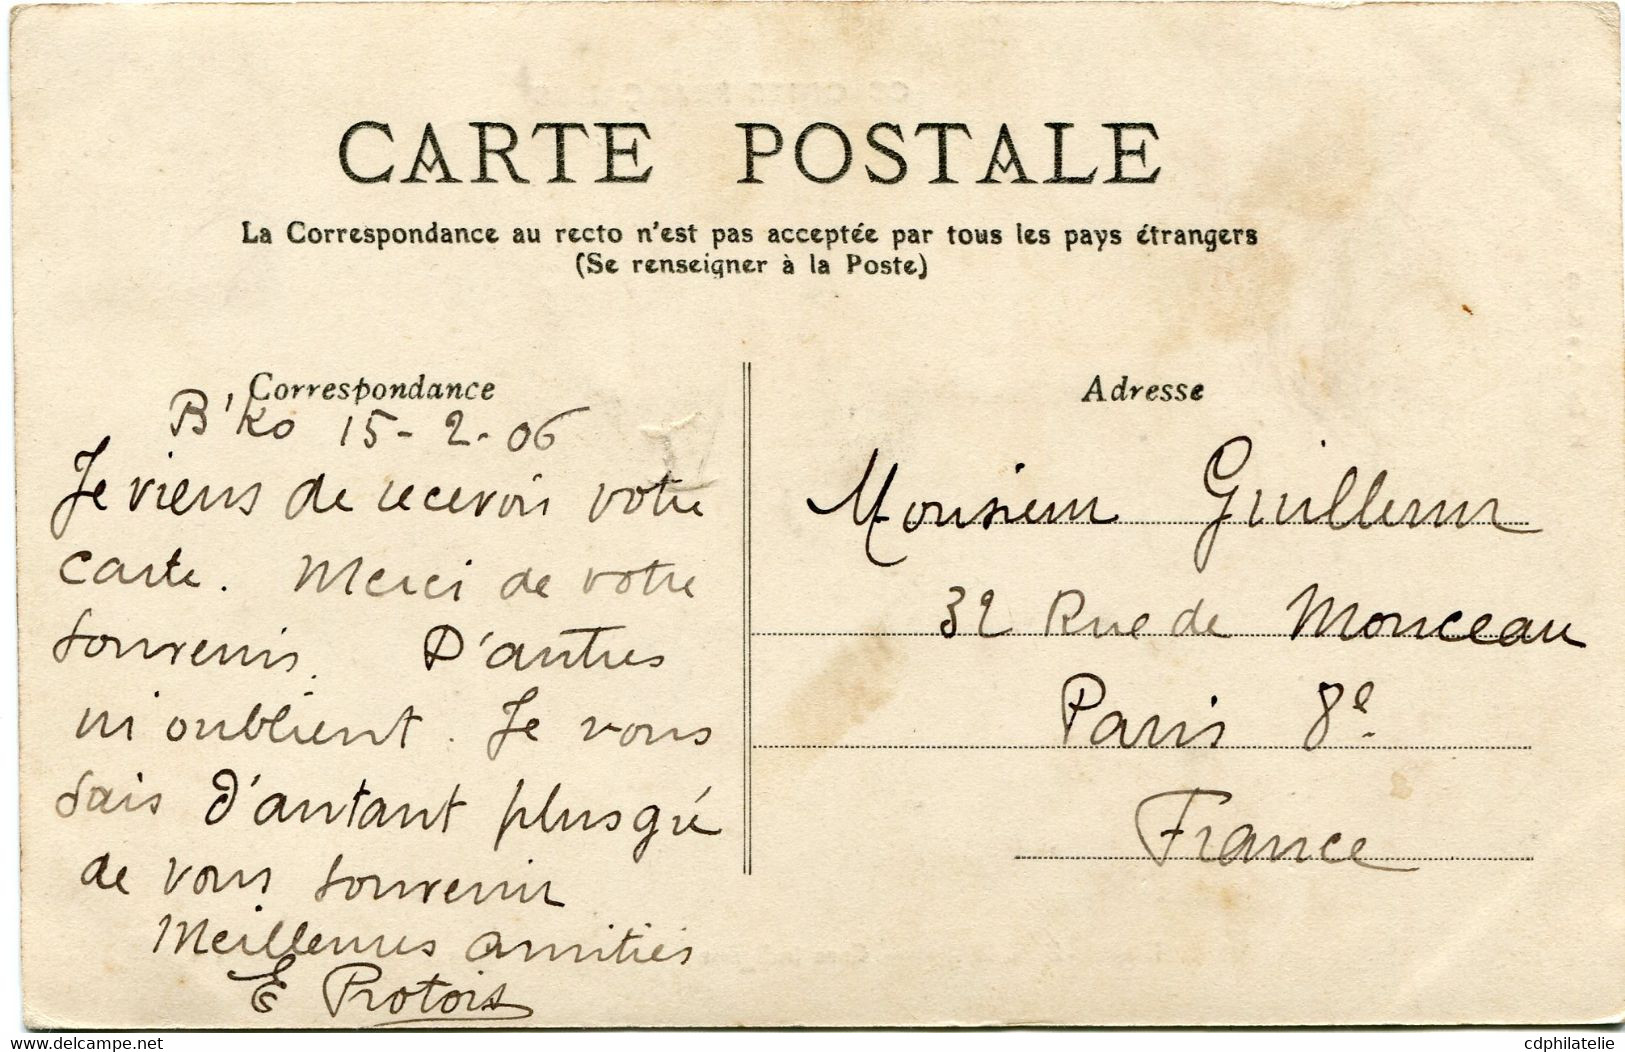 CARTE POSTALE
La Correspondance au recto n'est pas acceptée par tous les pays étrangers
(Se renseigner à la Poste)
Correspondance
B'ko 15-2-06
Je viens de recevoir votre
carte. Merci de votre
souvenir. D'autres
m'oublient. Je vous
sais d'autant plus gré
de vous souvenir
Meilleures amitiés
E Protois
Adresse
Monsieur Guillerm
32 Rue de Monceau
Paris 8e
France
www.delcampe.net
cdphilatelie